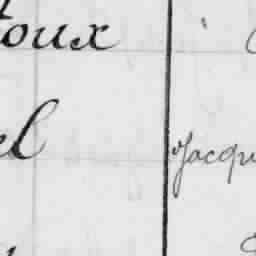 toux
el
Jacqu